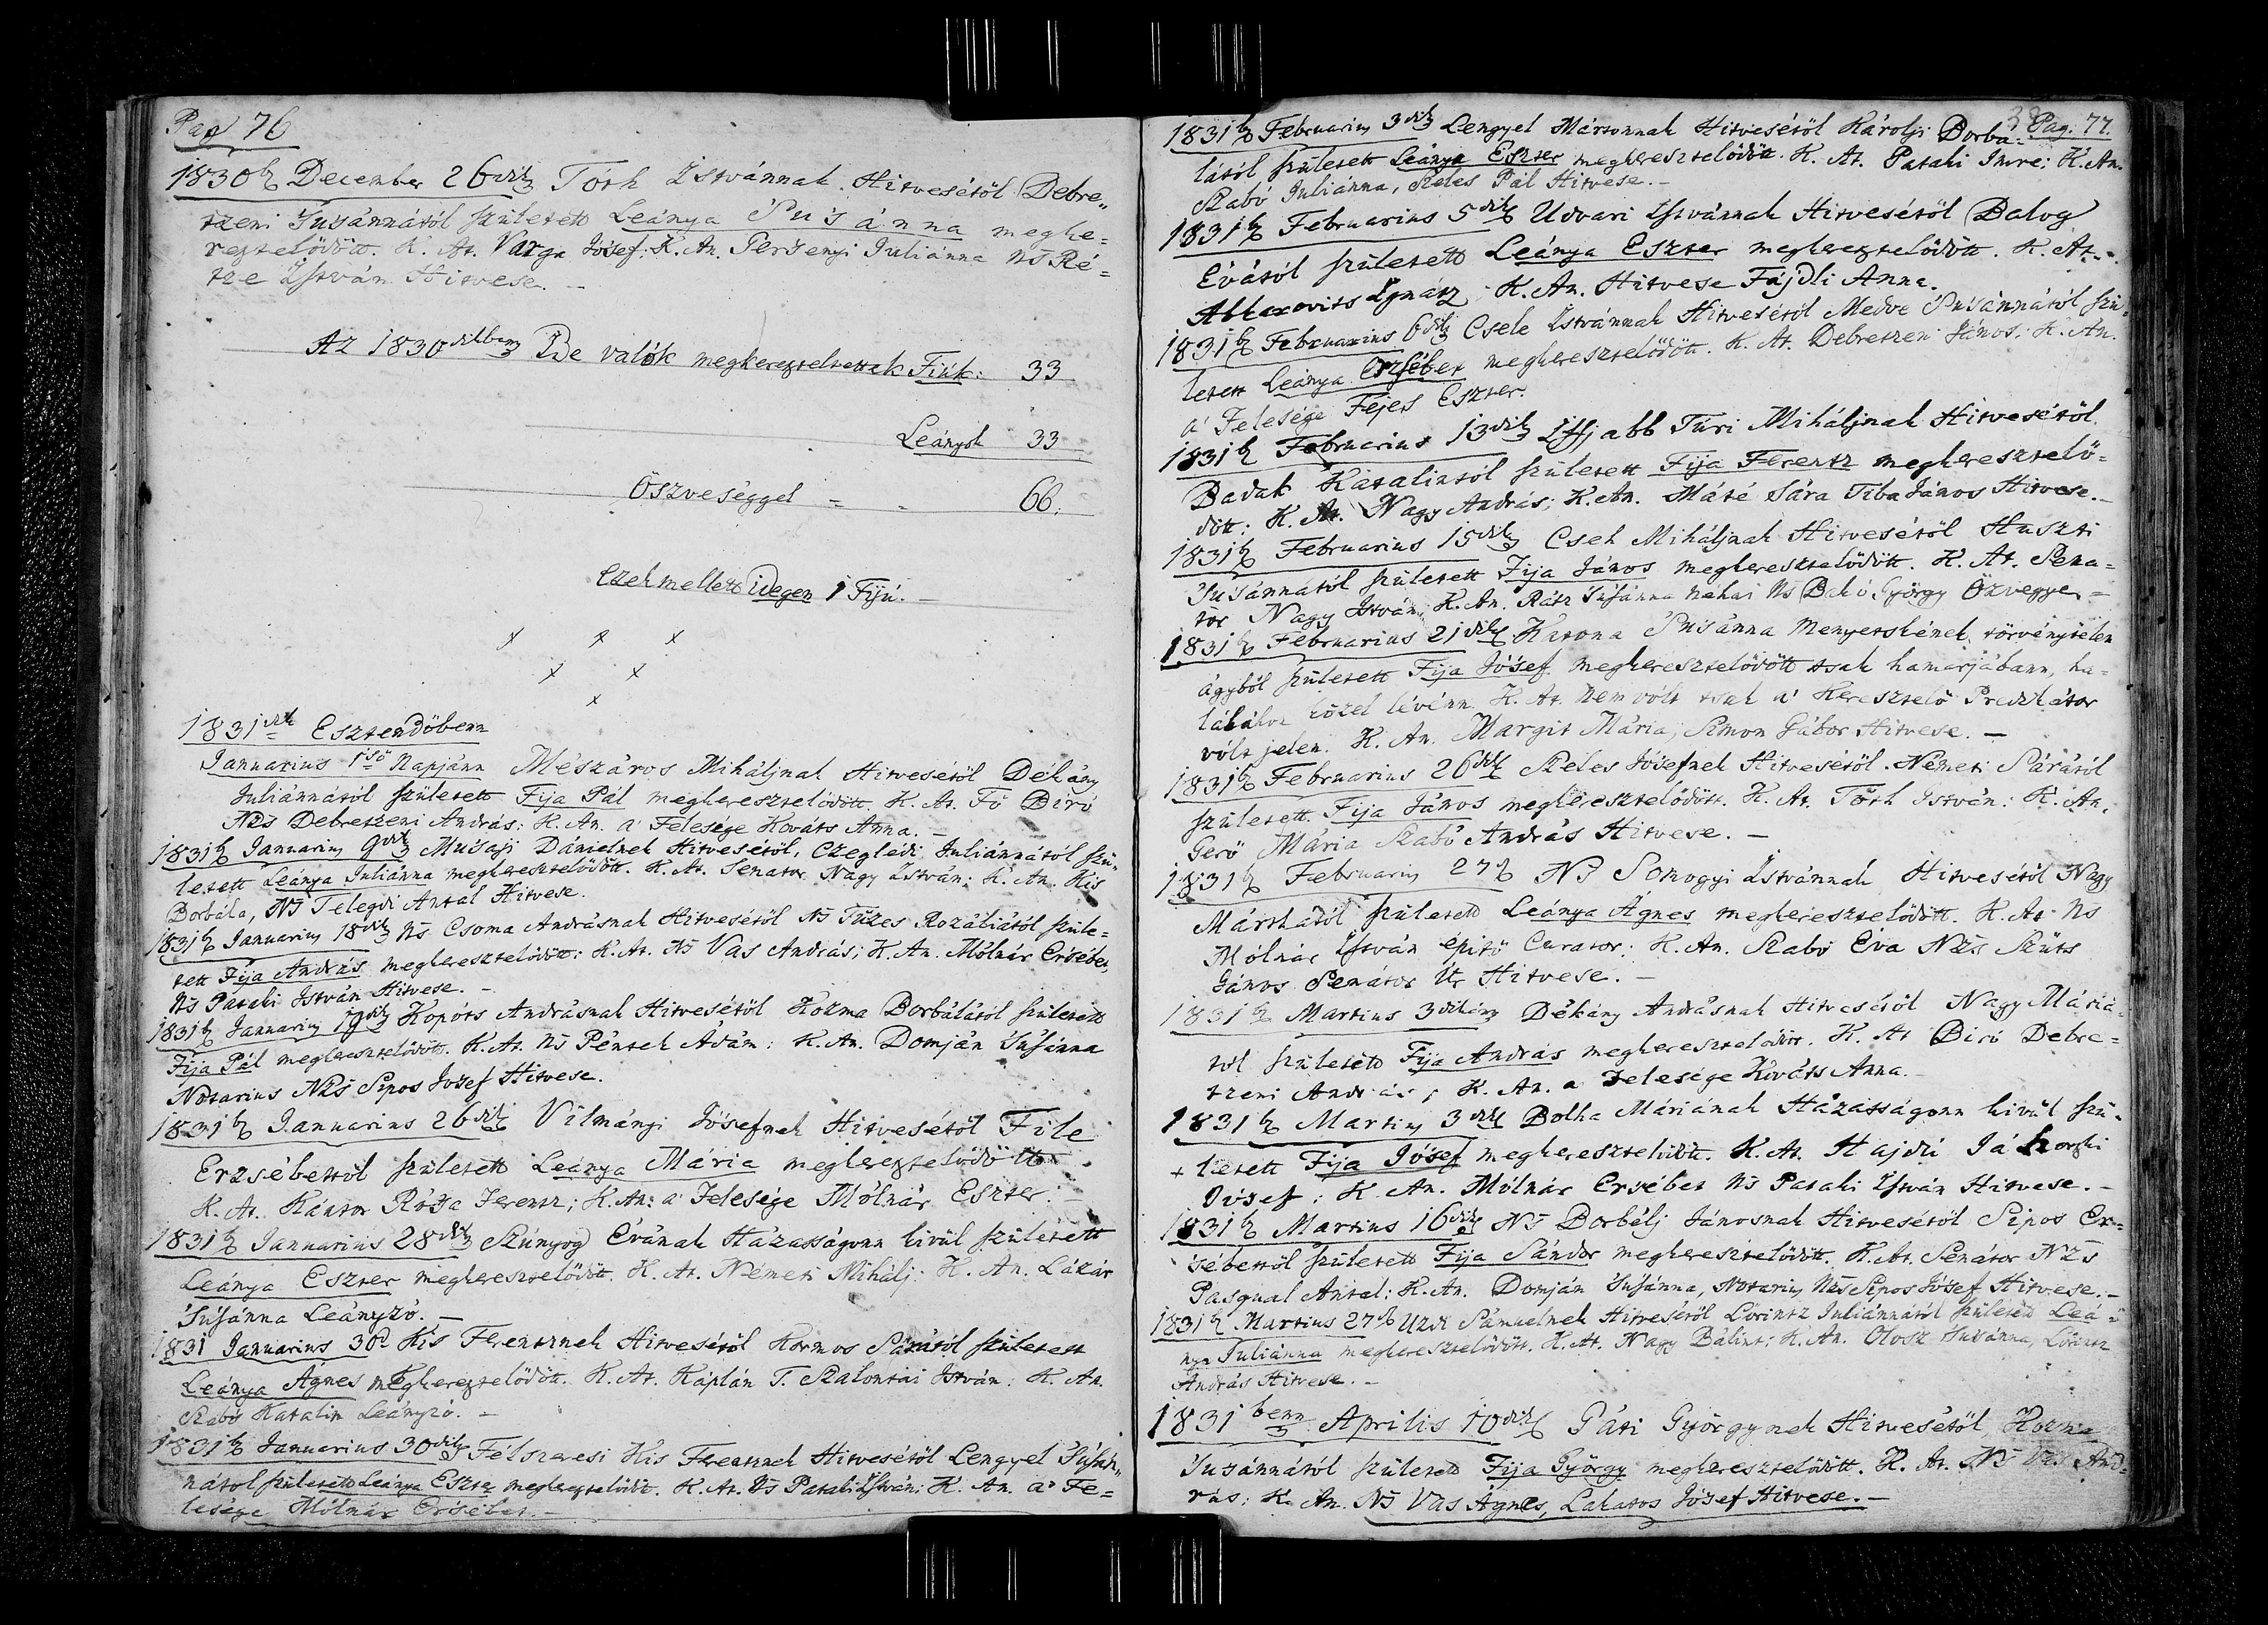 Pag 76
1830b December 26dik Tóth Istvánnak Hitvesétöl Debre„
tzeni Susánnától született Leánya Susánna megke=
reztelödött. K. At. Varga Jósef: K. An. Persenyi Juliánna Ns Ré=
tze István Hitvese. –
Az 1830dikben Be valók megkereztelttettek Fiúk: 33
Leányok 33
Öszveséggel = - 66.
Ezek mellett idegen 1 Fijú. –
x x x
x x
x
1831dik Esztendöbenn
Januarius 1sö Napjánn Mészáros Miháljnak Hitvesétöl Dékány
Juliánnától született Fija Pál megkeresztelödött. K. At. Fö Biró
Nzs Debretzeni András: K. An. a' Felesége Kováts Anna. –
1831b Januarius 9dik Musaji Dánielnek Hitvesétöl, Czeglédi Juliánnától szü„
letett Leánya Juliánna megkeresztelödött. K. At. Senator Nagy István; K. An. Kis
Borbála, Ns Telegdi Antal Hitvese.
1831b Januarius 18dik Ns Csoma Andrásnak Hitvesétöl Ns Tüzes Rozáliától szüle=
tett Fija András megkeresztelödött: K. At. Ns Vas András; K. An. Mólnár Ersébet,
Ns Pataki István Hitvese. –
1831b Januarius 19dik Kopóts Andrásnak Hitvesétöl Kozma Borbálától született
Fija Pál megkeresztelödött. K. At. Ns Péntek Ádám: K. An. Domján Susánna
Notarius Nzs Sipos Josef Hitvese.
1831b Januarius 26dik Vilmányi Jósefnek Hitvesétöl File
Erzsébettöl született Leánya Mária megkereztelödött
K. At. Kántor Rósa Ferentz; K. An: a' Felesége Mólnár Eszter. –
1831b Januarius 28dik Szúnyog Évának Házasságonn kivül született
Leánya Eszter megkeresztelödött. K. At. Németi Mihálj: K. An. Lázár
Susánna Leányzó. –
1831 Januarius 30d Kis Ferentznek Hitvesétöl Kormos Sárától született
Leánya Agnes megkereztelödött. K. At. Káplán T. Szalontai István: K. An.
Szabó Katalin Leányzó. –
1831b Januarius 30dik Félszeresi Kis Ferentznek Hitvesétöl Lengyel Susán„
nától született Leánya Eszter megkereztelödött. K. At. Ns Pataki István: K. An. a' Fe=
lesége Mólnár Ersébet. –
Pag. 77.
1831b Februarius 3dik Lengyel Mártonnak Hitvesétöl Károlyi Borbá-
lától született Leánya Eszter megkeresztelödött. K. At. Pataki Imre; K. An.
Szabó Juliánna, Szeles Pál Hitvese. –
1831b Februarius 5dik Udvari Istvánnak Hitvesétöl Balog
Évától született Leánya Eszter megkereztelödött. K. At.
Abkarovits Ignatz; K. An. Hitvese Fájdli Anna.
1831b Februarius 6dik Csele Istvánnak Hitvesétöl Medve Susánnától szü
letett Leánya Ersébet megkeresztelödött. K. At. Debretzeni János: K. An.
a' Felesége Fejes Eszter.
1831b Februarius 13dik Iffjabb Turi Miháljnak Hitvesétöl
Badak Katalintól született Fija Ferentz megkeresztelö=
dött: K. At. Nagy András; K. An. Máté Sára Tiba János Hitvese. –
1831b Februarius 15dik Cseh Miháljnak Hitvesétöl Huszti
Susánnától született Fija János megkeresztelödött. K. At. Sena=
tor Nagy István; K. An. Rátz Susánna néhai Ns Bakó György Özvegye. –
1831b Februarius 21dik Katona Susánna Menyetskének törvénytelen
ágyból született Fija Jósef megkeresztelödött tsak hamarjábann, ha-
lálához közel lévénn. K. At. nem vólt tsak a' Keresztelö Predikátor
vólt jelen. K. An. Margit Mária, Simon Gábor Hitvese. –
1831b Februarius 26dik Szeles Jósefnek Hitvesétöl Németi Sárától
született Fija János megkeresztelödött. K. At. Tóth István: K. An.
Gerö Mária Szabó András Hitvese. –
1831b Februarius 27b Ns Somogyi Istvánnak Hitvesétöl Nagy
Márthától született Leánya Ágnes megkeresztelödött. K. At. Ns
Mólnár István épitö Curator; K. An. Szabó Éva Nzs Szüts
János Senátor Úr Hitvese. –
1831b Martius 3dikánn Dékány Andrásnak Hitvesétöl Nagy Máriá-
tól született Fija András megkeresztelödött. K. At. Biró Debre=
tzeni András; K. An. a Felesége Kováts Anna.
1831b Martius 3dik Bolha Máriának Házasságonn kivül szü-
+ letett Fija Jósef megkeresztelödött. K. At. Hajdú
Jósef: K. An. Mólnár Ersébet Ns Pataki István Hitvese. –
1831b Martius 16dik Ns Borbélj Jánosnak Hitvesétöl Sipos Er=
sébettöl született Fija Sándor megkeresztelödött. K. At. Senátor Nzs
Pasqual Antal: K. An. Domján Susánna, Notarius Nzs Sipos Jósef Hitvese. –
1831b Martius 27b Uzdi Sámuelnek Hitvesétöl Lörintz Juliánnától született Leá-
nya Juliánna megkeresztelödött. K. At. Nagy Bálint; K. An. Olosz Susánna, Lörintz
András Hitvese. –
1831benn Aprilis 10dik Páti Györgynek Hitvesétöl, Kozma
Susánnától született Fija György megkeresztelödött. K. At. Ns Vas And=
rás; K. An. Ns Vas Ágnes, Lakatos Jósef Hitvese. –